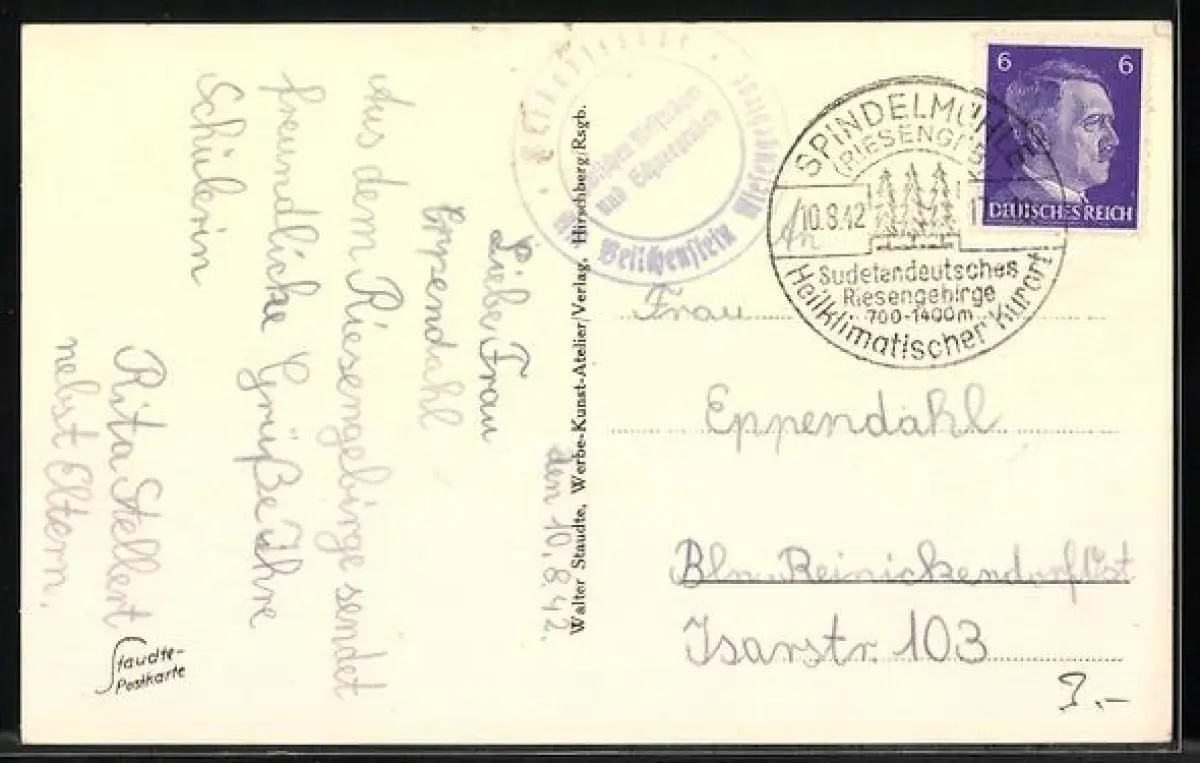 den 10.8.42.
Liebe Frau
Eppendahl
Aus dem Riesengebirge sendet
freundliche Grüße Ihre
Schülerin
Rita Stellert
nebst Eltern.
Staudte-
Postkarte
Walter Staudte, Werbe-Kunst-Atelier/Verlag, Hirschberg/Rsgb.
und
Riesengebirge
SPINDELMÜHLE
(RIESENGEB
10.8.42
Sudetendeutsches
Riesengebirge
700-1400m
Heilklimatischer Kurort
6 6
DEUTSCHES REICH
Frau
Eppendahl
Bln. Reinickendorf Ost
Isarstr. 103
3.-